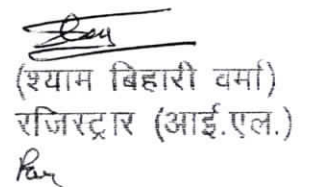 (श्याम बिहारी वर्मा)
रजिस्ट्रार (आई.एल.)